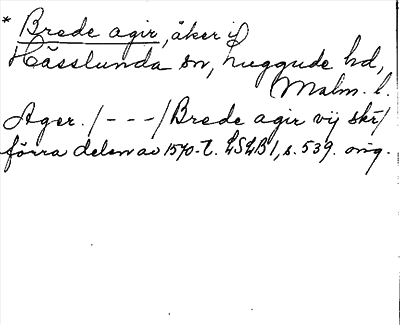 * Brede agir, åker i
Hässlunda sn, Luggude hd,
Malm. l.
Ager. / - - - / Brede agir vij skr/
förra delen av 1570-t. LSLB 1, s. 539. orig.